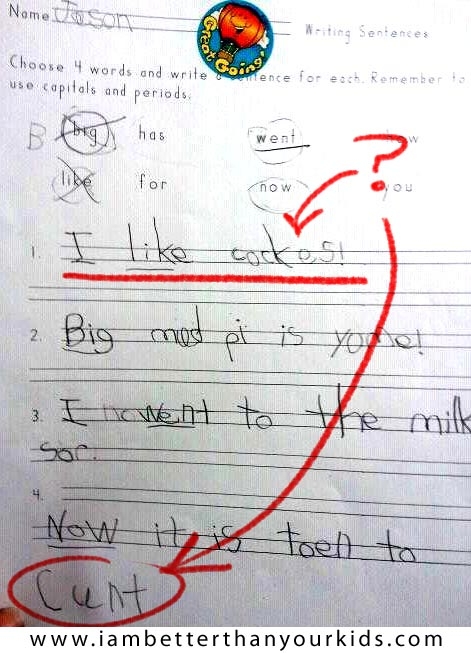 Name Jason
Great Going!
Writing Sentences
Choose 4 words and write a sentence for each. Remember to
use capitals and periods.
B big has went
like for now you
?
1. I like cockes!
2. Big mod pi is yome!
3. I nowent to the milk
sor.
4.
Now it is toen to
cunt
www.iambetterthanyourkids.com